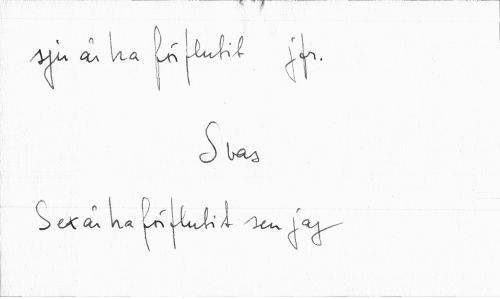 sju år ha förflutit jfr.
Svas
Sex år ha förflutit sen jag